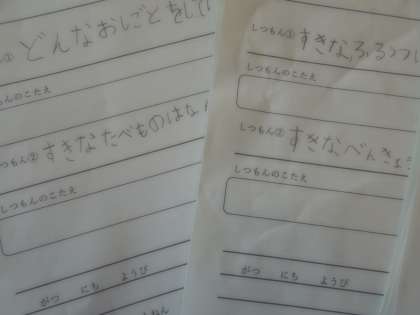 ① どんなおしごとをしてい
もんのこたえ
つもん② すきなたべものはなん
しつもんのこたえ
がつ にち ようび
ねん
しつもん① すきなふるつは
しつもんのこたえ
しつもん② すきなべんきょう
しつもんのこたえ
がつ にち ようび